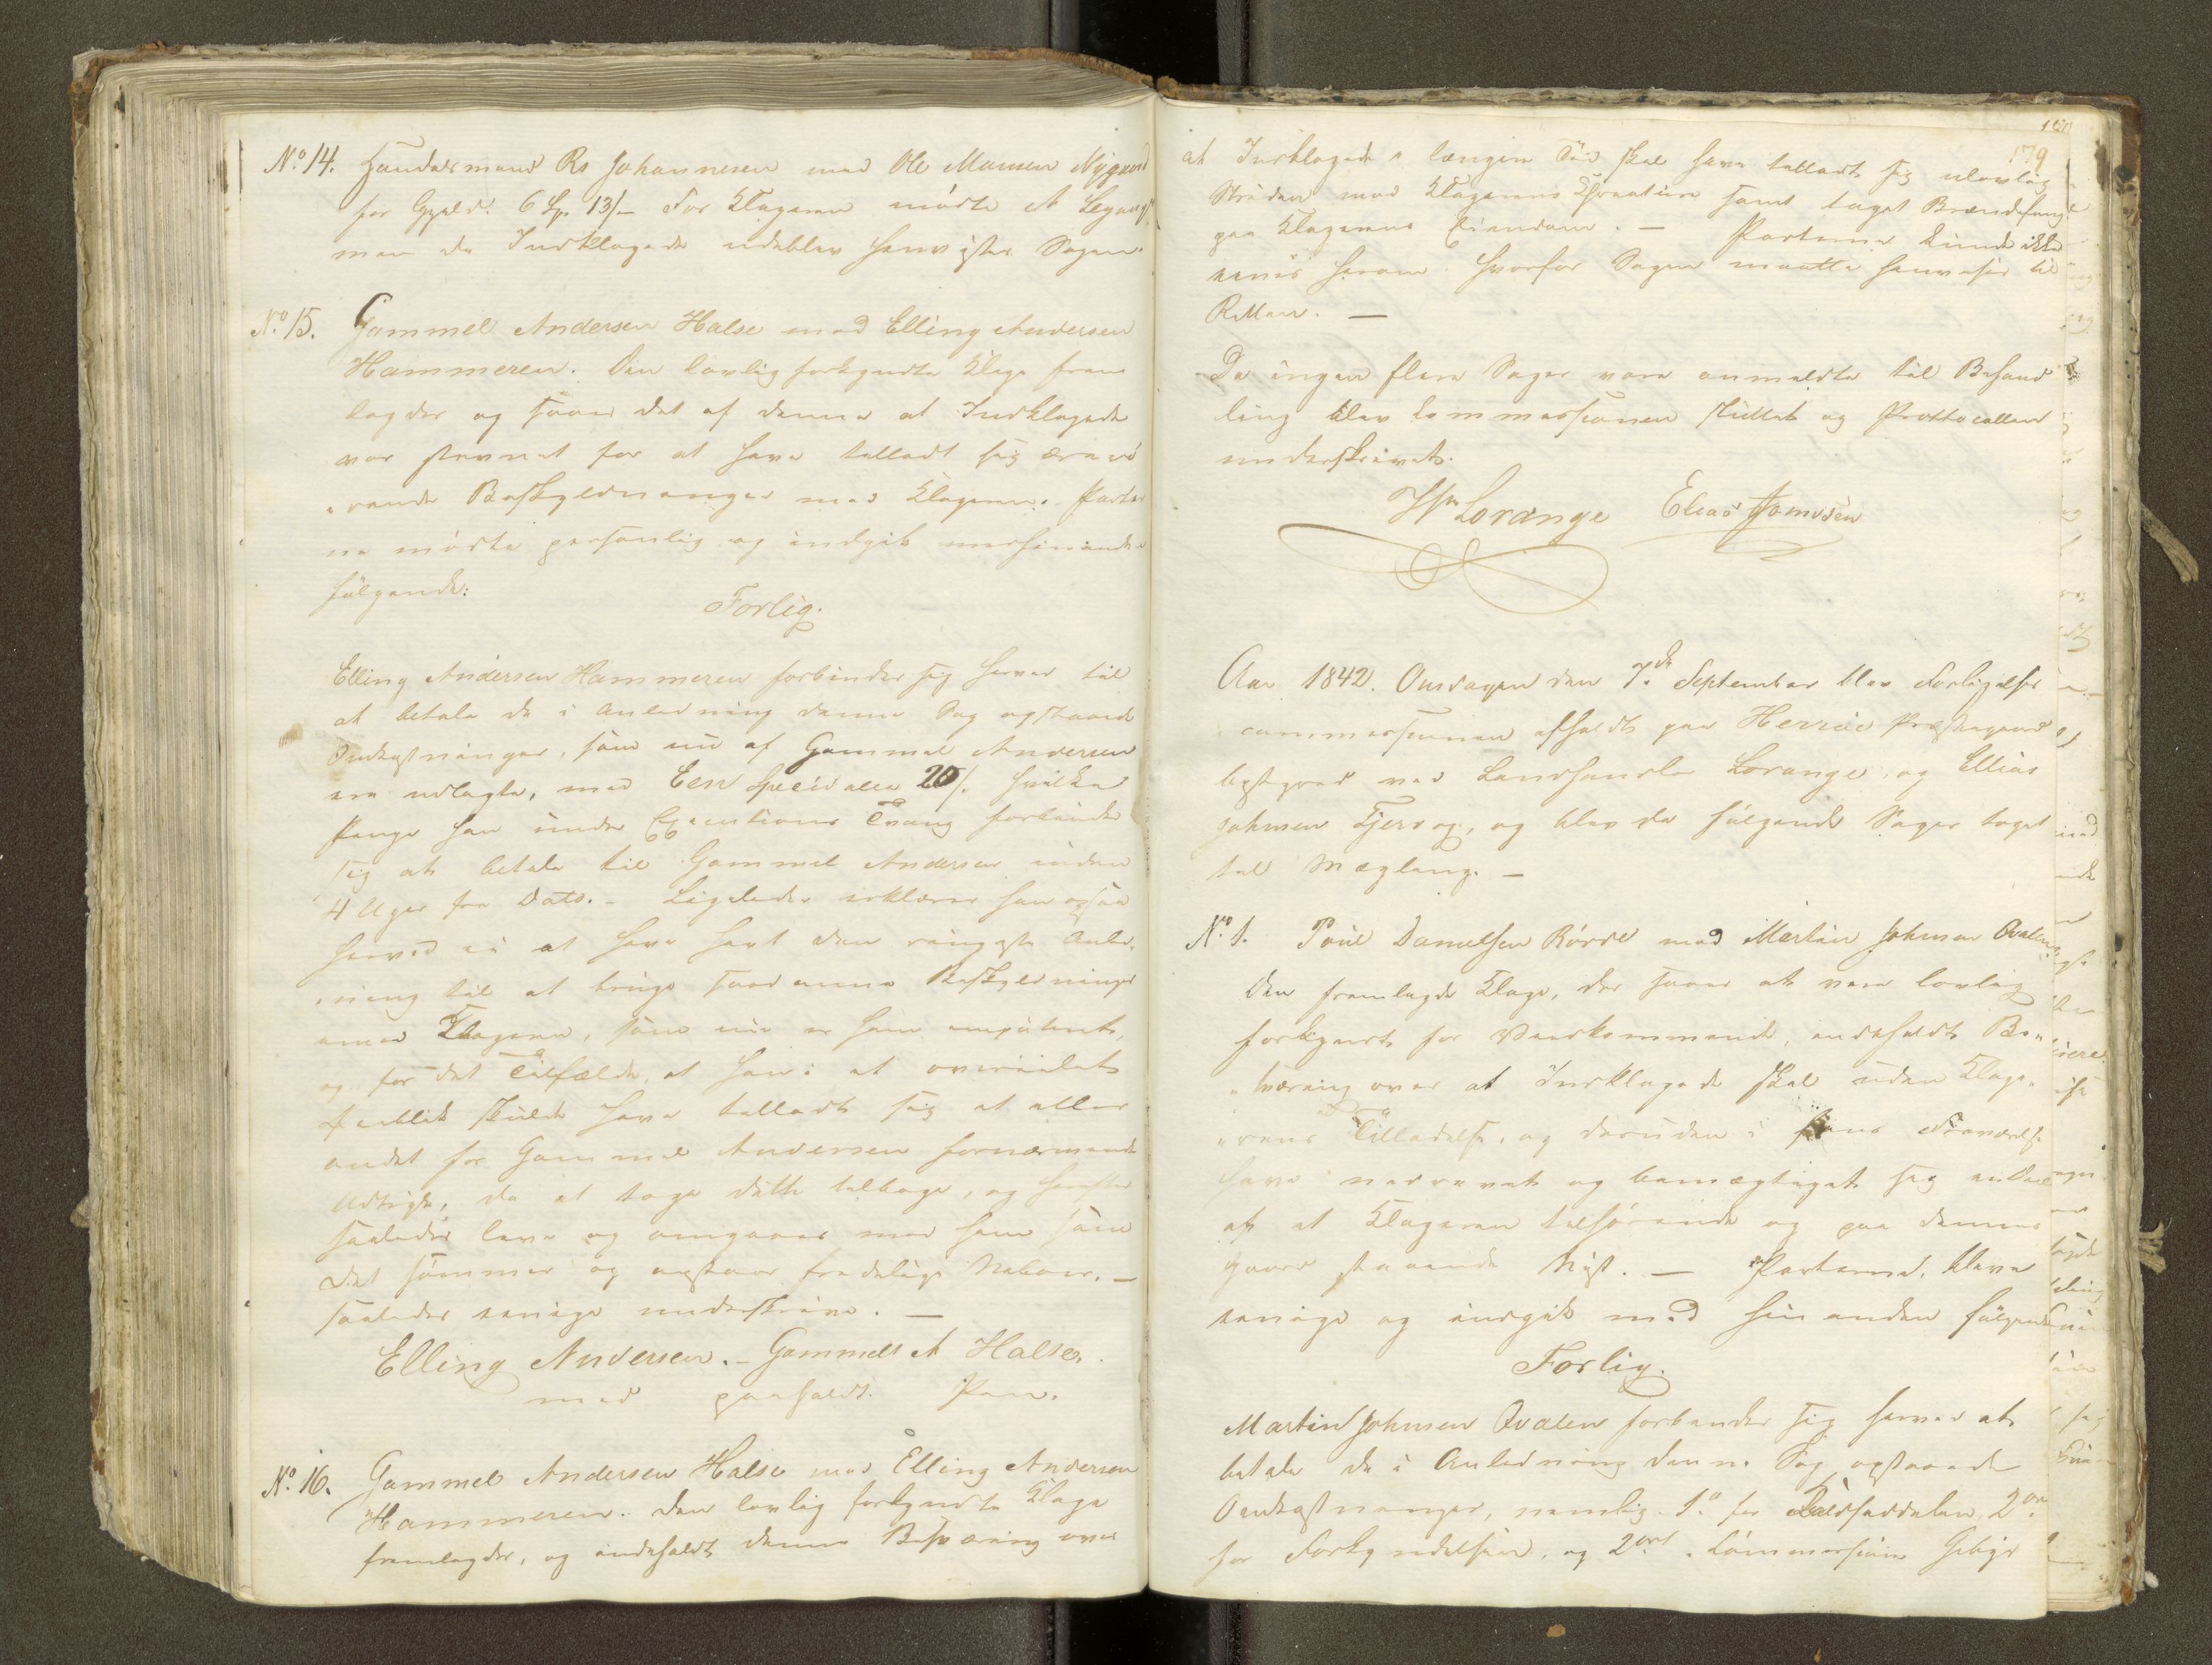 No. 14. Handelsmand Rs Johannesen mod Ole Monsen Nÿgaard
for Gjæld. 6 Sp. 13/- For Klageren mödte A
men da Indklagede udeblev henvistes Sagen.
No. 15. Gammel Andersen Halse mod Elling Andersen
Hammeren. Den lovlig forkyndte Klage frem
lagdes og saaes det af denne at Indklagede
var stevnet for at have tilladt sig ærerö
rende Beskyldninger mod Klageren. Parter
ne mödte personlig og indgik med hinanden
fölgende:
Forlig.
Elling Andersen Hammeren forbinder sig herved til
at betale de i Anledning denne Sag opstaaede
Omkostninger, som nu af Gammel Andersen
ere udlagte, med Een Speciedaler 20/. hvilke
Penge han under Executions Tvang forbinder
sig at betale til Gammel Andersen inden
4 Uger fra Dato. - Ligeledes erklærer han ogsaa
herved ei at have havt den ringeste Anled-
ning til at bringe saadanne Beskyldninger
mod Klageren, som nu er ham
og for det Tilfælde, at han i et overiilet
Öieblik skulde have tilladt sig et eller
andet for Gammel Andersen fornærmende
Udtryk, da at tage dette tilbage, og herefter
saaledes leve og omgaaes med ham som
det sömmer og anstaaer fredelige Naboer. -
saaledes enige underskrive. -
Elling Andersen. - Gammel A Halse.
med paaholdt Pen.
No. 16. Gammel Andersen Halse mod Elling Andersen
Hammeren. Den lovlig forkyndte Klage
fremlagdes, og indeholdt denne Besværing over
179
at Indklagede i længere Tid skal have tilladt sig ulovlig
mod Klagerens Kreature samt taget Brændefang
paa Klagerens Eiendom. - Parterne kunde ikke
enes herom hvorfor Sagen maatte henvises til
Retten. -
Da ingen flere Sager vare anmeldte til Behand
ling blev Commissionen sluttet og Protocollen
underskrevet.
Lorange Elias Johnsen
Aar 1842. Onsdagen den 7de September blev Forligelses
commissionen afholdt paa Herröe Præstegaard
betjent ved Landhandler Lorange, og Elias
Johnsen Tjervaag, og blev da fölgende Sager taget
til Mægling. -
No. 1. Poul Danielsen Rövde mod Martin Johnsen Qvalen
Den fremlagde Klage, der saaes at være lovlig
forkyndt for Vedkommende, indeholdt Be-
sværing over at Indklagede skal uden Klage-
rens Tilladelse, og desuden i hans Fraværelse
have nedrevet og bemægtiget sig en Deel
af et Klageren tilhörende og paa dennes
Gaard staaende Nöst. - Parterne bleve
enige og indgik med hinanden fölgende
Forlig.
Martin Johnsen Qvalen forbinder sig herved at
betale de i Anledning denne Sag opstaaede
Omkostninger, nemlig 1o for 2o
for Forkyndelsen, og 2ort Commissions Gebyr